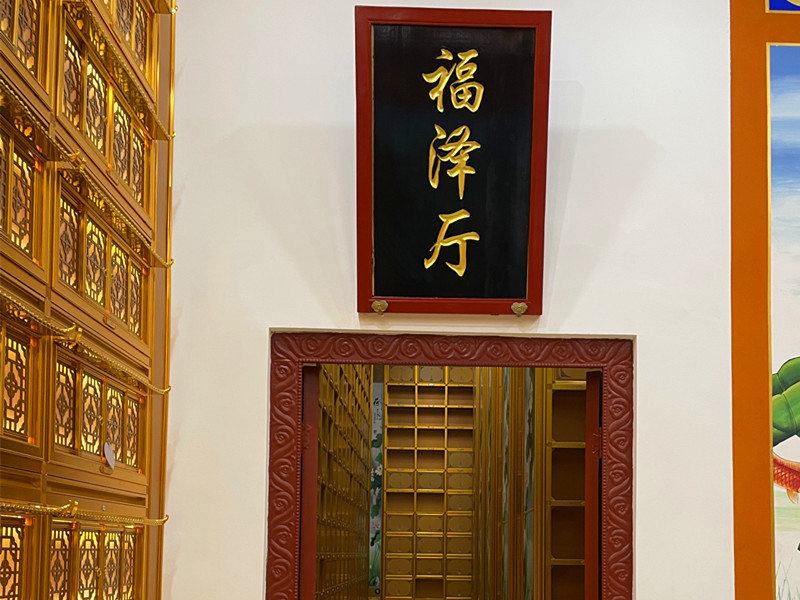 福泽厅